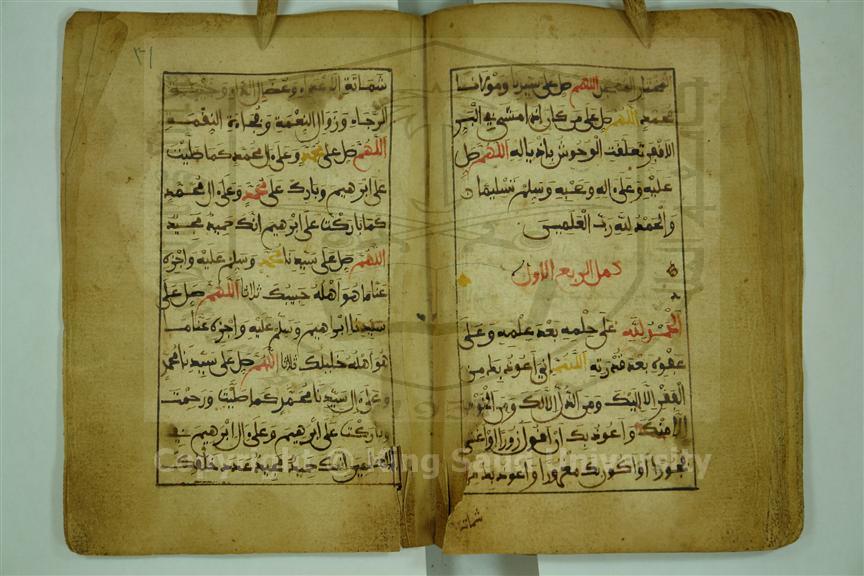 المختار الممجد اللهم صل على سيدنا ومولانا
محمد اللهم صل على من كان اذا مشى في البر
الاقفر تعلقت الوحوش باذياله اللهم صل
عليه وعلى اله وصحبه وسلم تسليما
والحمد لله رب العلمين
كمل الربع الاول
الحمد لله على حلمه بعد علمه وعلى
عفوه بعد قدرته اللهم اني اعوذ بك من
الفقر الا اليك ومن الذل الا لك ومن الخوف
الا منك واعوذ بك ان اقول زورا او اغشى
فجورا او اكون بك مغرورا واعوذ بك من
شماتة
٣١
شماتة الاعداء وعضال الداء وخيبة
الرجاء وزوال النعمة وفجاءة النقمة
اللهم صل على محمد وعلى ال محمد كما صليت
على ابرهيم وبارك على محمد وعلى ال محمد
كما باركت على ابرهيم انك حميد مجيد
اللهم صل على سيدنا محمد وسلم عليه واجزه
عنا ما هو اهله حبيبك ثلاثا اللهم صل على
سيدنا ابرهيم وسلم عليه واجزه عنا ما
هو اهله خليلك ثلاثا اللهم صل على سيدنا محمد
وعلى ال سيدنا محمد كما صليت ورحمت
وباركت على ابرهيم وعلى ال ابرهيم في
العلمين انك حميد مجيد عدد خلقك
Copyright © King Saud University
1957